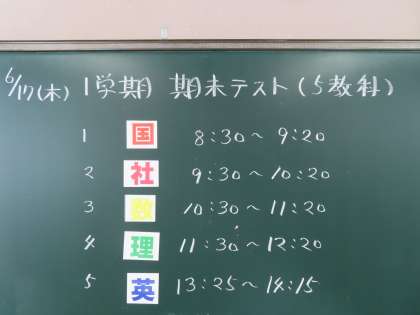 6/17(木) 1学期 期末テスト(5教科)
1 国 8:30〜9:20
2 社 9:30〜10:20
3 数 10:30〜11:20
4 理 11:30〜12:20
5 英 13:25〜14:15